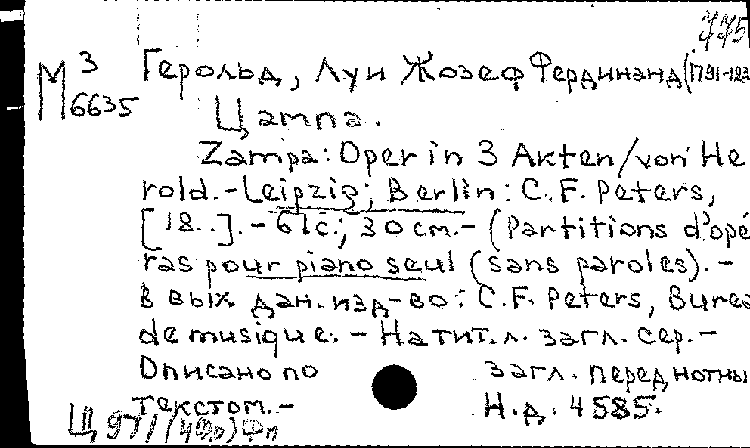 775
М 3 6635
Герольд, Луи Жозеф Фердинанд (1791-183
Цампа.
Zampa: Oper in 3 Akten/von He
rold.-Leipzig; Berlin: C.F. Peters,
[18..].-61с.; 30 см.-(Partitions d'opé
ras pour piano seul (sans paroles).-
В вых. дан. изд-во: C.F. Peters, Burea
de musique. - На тит.л. загл. сер.-
Описано по загл. перед нотны
текстом.- Н.д. 4585.
Ц 971